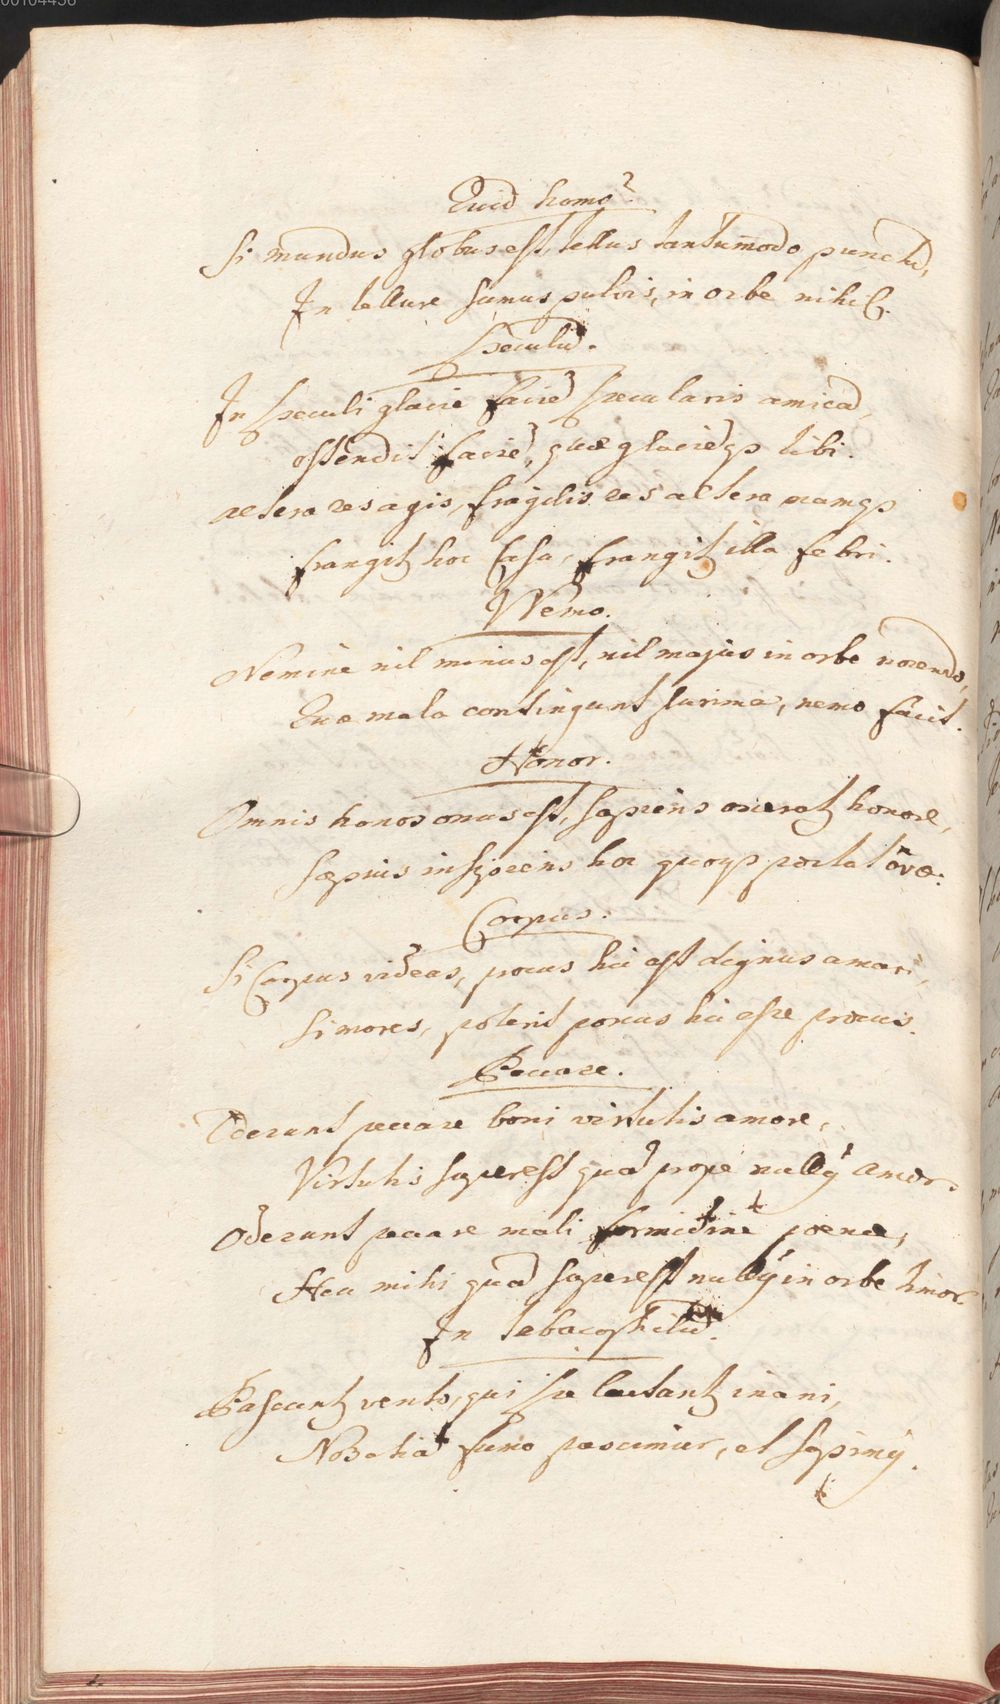 00104436
Quid homo?
Si mundus globus est, tellus tantum̅modo punctũ,
In tellure sumus pulvis, in orbe nihil.
Speculũ.
In speculi glacie faciẽ specularis amicã,
ostendit faciẽ, quæ glacieqꝫ tibi.
altera res agis, fragilis res altera namqꝫ
frangitꝫ hoc casu, frangitꝫ illa febri.
Nemo.
Nemine nil minus est, nil majus in orbe vocando,
Quæ mala contingunt plurima, nemo facit.
Honor.
Omnis honos onus est, sapiens oneratꝫ honore,
Sæpius insipiens hoc quoqꝫ portat
Corpus.
Si Corpus videas, procus hic est dignus amari,
Si mores, poterit porcus hic esse procus.
Peccare.
Oderunt peccare boni virtutis amore,
Virtutis superest quod prope nullꝰ amor.
Oderunt peccare mali formidine pœnæ,
Heu mihi quod superest nullꝰ in orbe timor.
In
Pascuntꝫ vento, qui spe lactantꝫ inani,
Nos etiã fumo pascimur, et sapimꝰ.